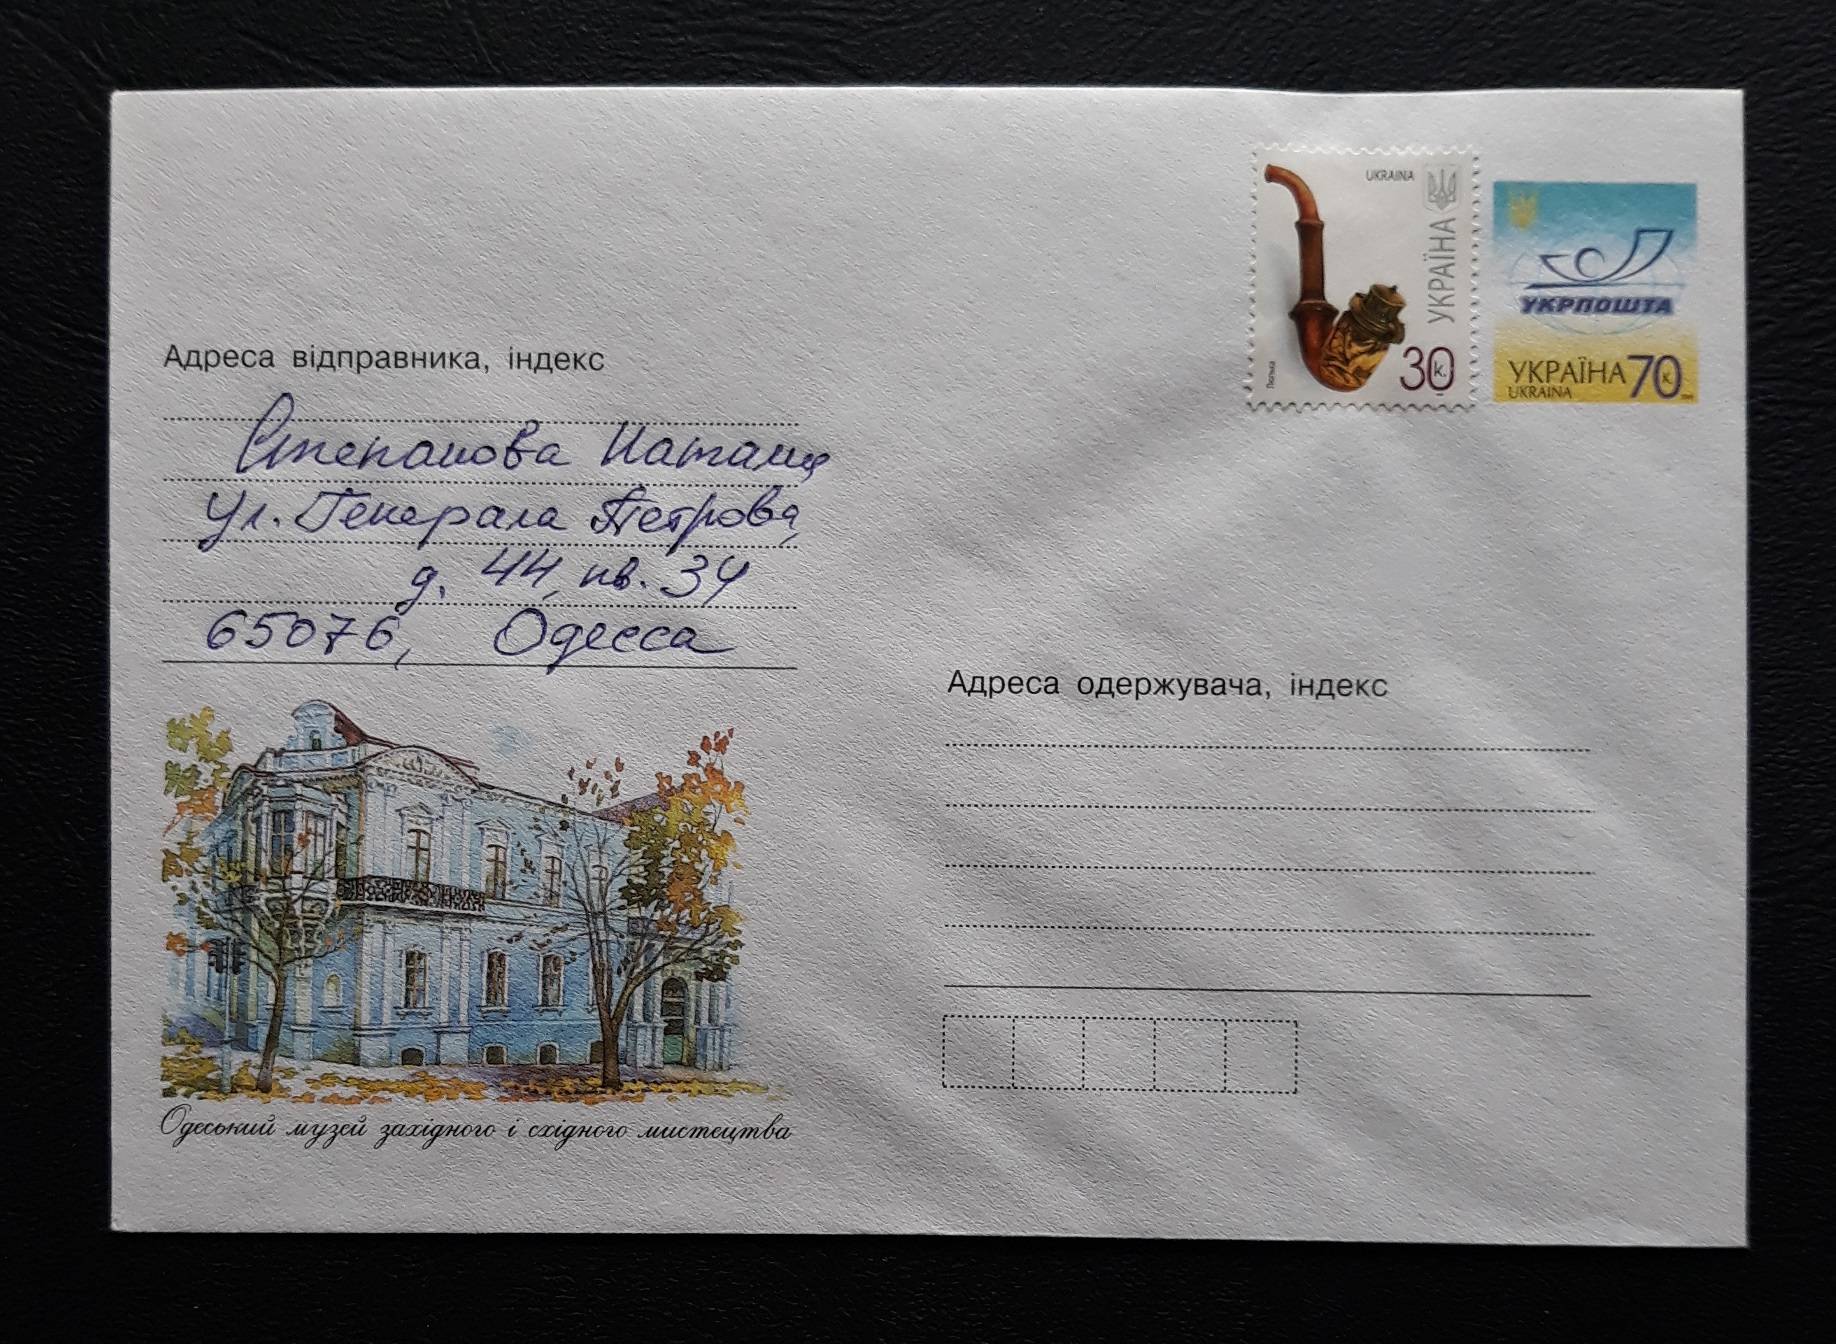 UKRAINA
УКРАЇНА
30 к.
Люлька
УКРПОШТА
УКРАЇНА 70 к.
UKRAINA
Адреса відправника, індекс
Степанова Наталия
Ул. Генерала Петрова,
д. 44, кв. 34
65076, Одесса
Адреса одержувача, індекс
Одеський музей західного і східного мистецтва